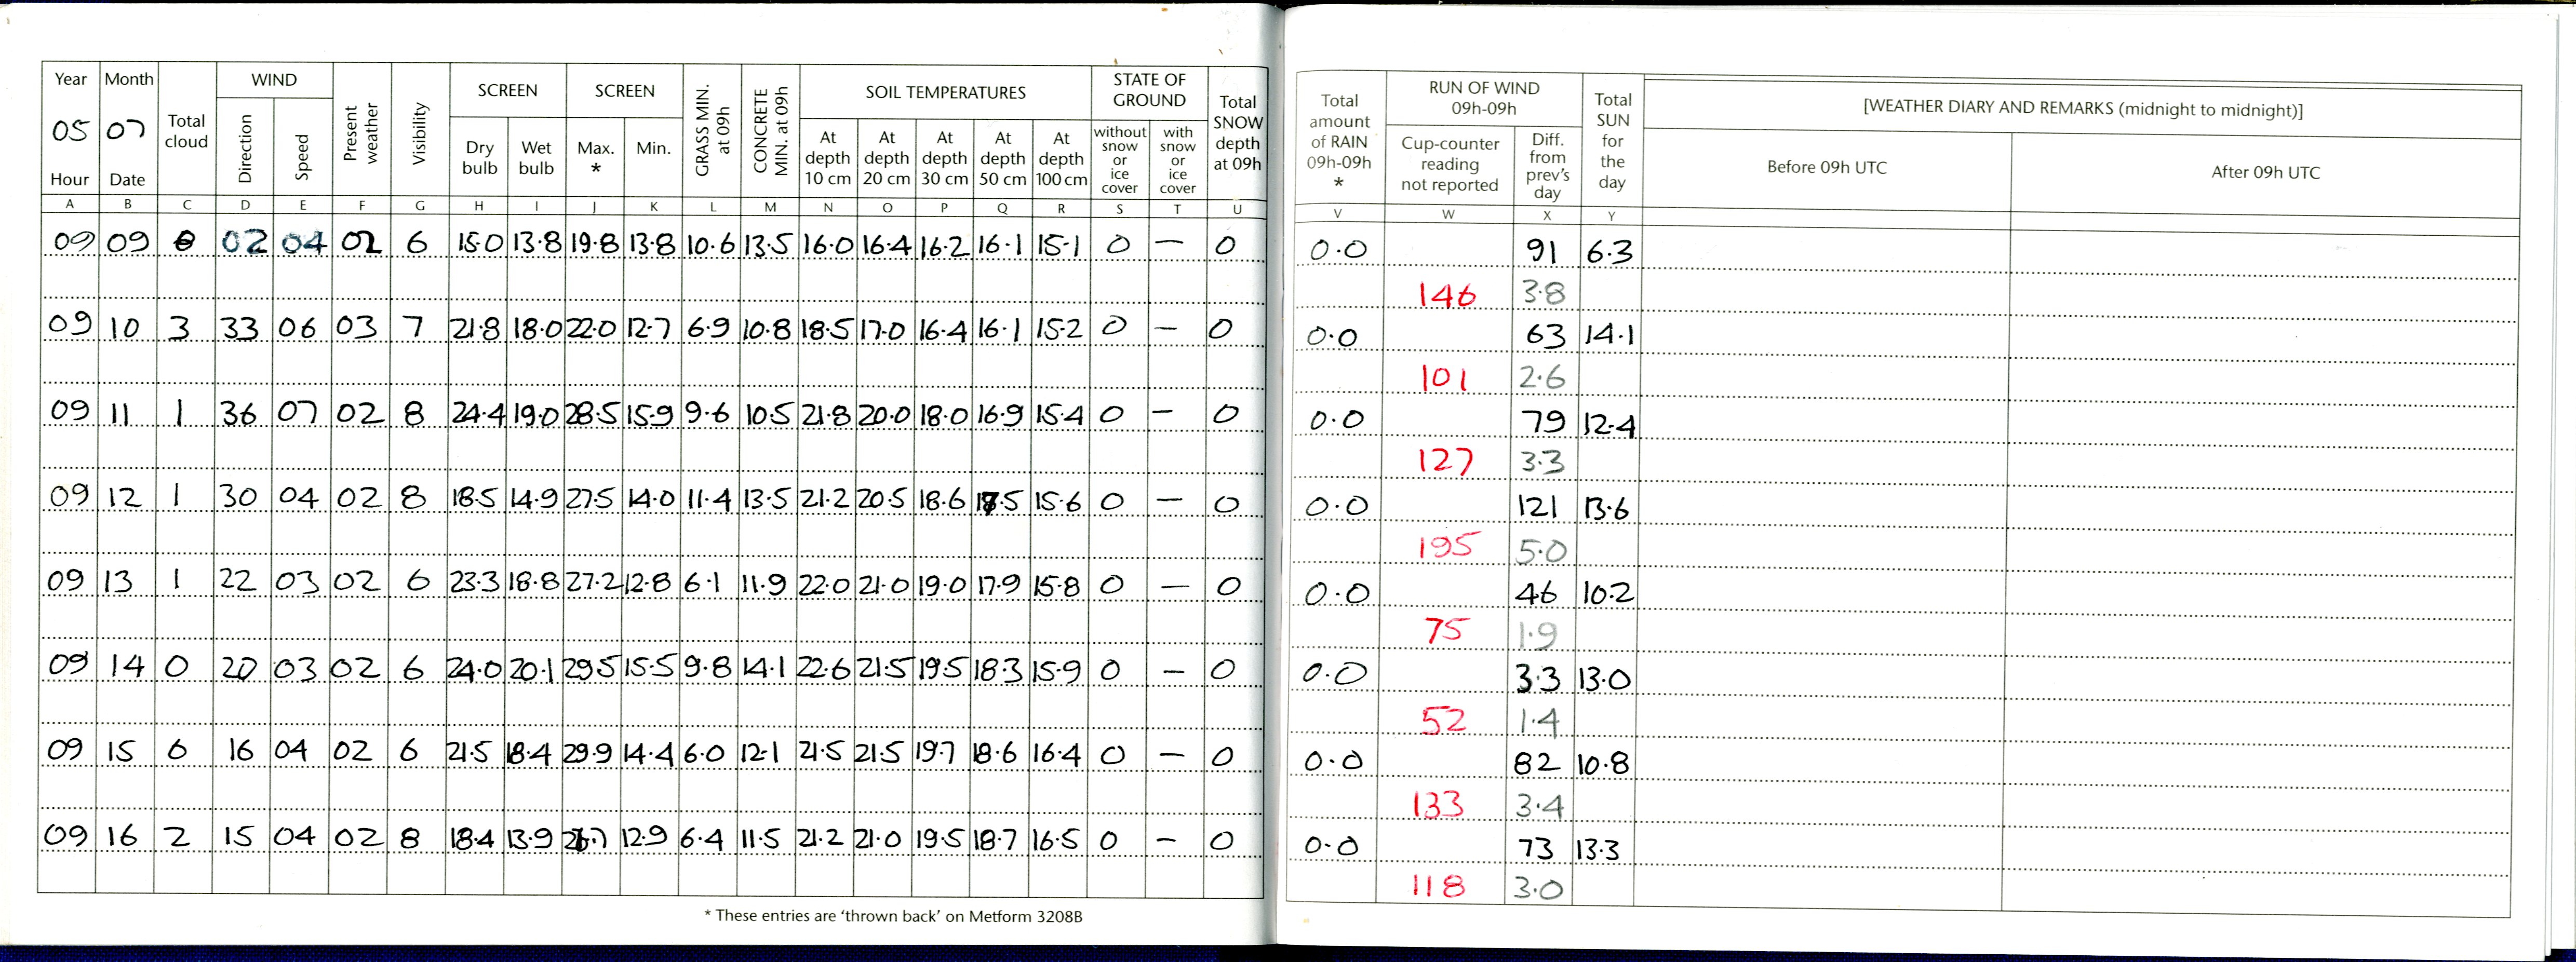 Year Month Total cloud WIND Present weather Visibility SCREEN SCREEN GRASS MIN. at 09h CONCRETE MIN. at 09h SOIL TEMPERATURES STATE OF GROUND Total SNOW depth at 09h
05 07 Direction Speed Dry bulb Wet bulb Max. * Min. At depth 10 cm At depth 20 cm At depth 30 cm At depth 50 cm At depth 100 cm without snow or ice cover with snow or ice cover
Hour Date
A B C D E F G H I J K L M N O P Q R S T U
09 09 02 04 02 6 15.0 13.8 19.8 13.8 10.6 13.5 16.0 16.4 16.2 16.1 15.1 0 — 0
09 10 3 33 06 03 7 21.8 18.0 22.0 12.7 6.9 10.8 18.5 17.0 16.4 16.1 15.2 0 — 0
09 11 1 36 07 02 8 24.4 19.0 28.5 15.9 9.6 10.5 21.8 20.0 18.0 16.9 15.4 0 — 0
09 12 1 30 04 02 8 18.5 14.9 27.5 14.0 11.4 13.5 21.2 20.5 18.6 17.5 15.6 0 — 0
09 13 1 22 03 02 6 23.3 18.8 27.2 12.8 6.1 11.9 22.0 21.0 19.0 17.9 15.8 0 — 0
09 14 0 20 03 02 6 24.0 20.1 29.5 15.5 9.8 14.1 22.6 21.5 19.5 18.3 15.9 0 — 0
09 15 6 16 04 02 6 21.5 18.4 29.9 14.4 6.0 12.1 21.5 21.5 19.7 18.6 16.4 0 — 0
09 16 2 15 04 02 8 18.4 13.9 12.9 6.4 11.5 21.2 21.0 19.5 18.7 16.5 0 — 0
* These entries are ‘thrown back’ on Metform 3208B
Total amount of RAIN 09h-09h * RUN OF WIND 09h-09h Total SUN for the day [WEATHER DIARY AND REMARKS (midnight to midnight)]
Cup-counter reading not reported Diff. from prev's day Before 09h UTC After 09h UTC
V W X Y
0.0 91 6.3
146 3.8
0.0 63 14.1
101 2.6
0.0 79 12.4
127 3.3
0.0 121 13.6
195 5.0
0.0 46 10.2
75 1.9
0.0 3.3 13.0
52 1.4
0.0 82 10.8
133 3.4
0.0 73 13.3
118 3.0